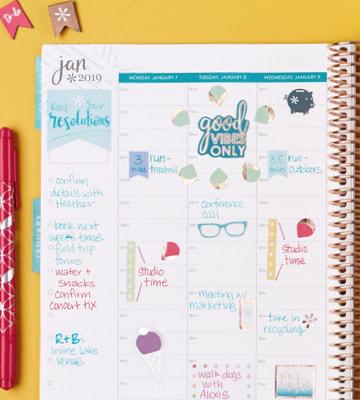 to do
jan
2019
MONDAY, JANUARY 7
TUESDAY, JANUARY 8
WEDNESDAY, JANUARY 9
Keep Your
resolutions
good
VIBES
ONLY
3
miles
run-
treadmill
3.5
miles
run-
outdoors
confirm
details with
Heather
conference
call
book next
week's time
field trip
forms
water +
snacks
confirm
concert tix
JANUARY
studio
time
studio
time
meeting w/
marketing
take in
recycling
R+B:
Irvine Lake
Venue
walk dogs
with
Alexis